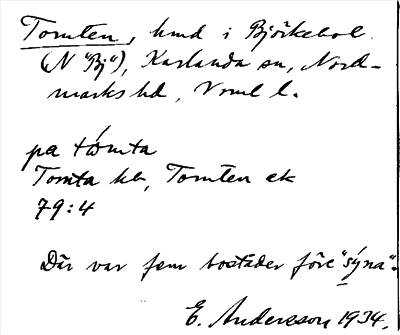 Tomten, hmd i Björkebol
(N "Bj"), Karlanda sn, Nord-
marks hd, Vrml l.
på tômta
Tomta kb, Tomten ek
79:4
Där var fem bostäder före "syna".
E. Andersson 1934.